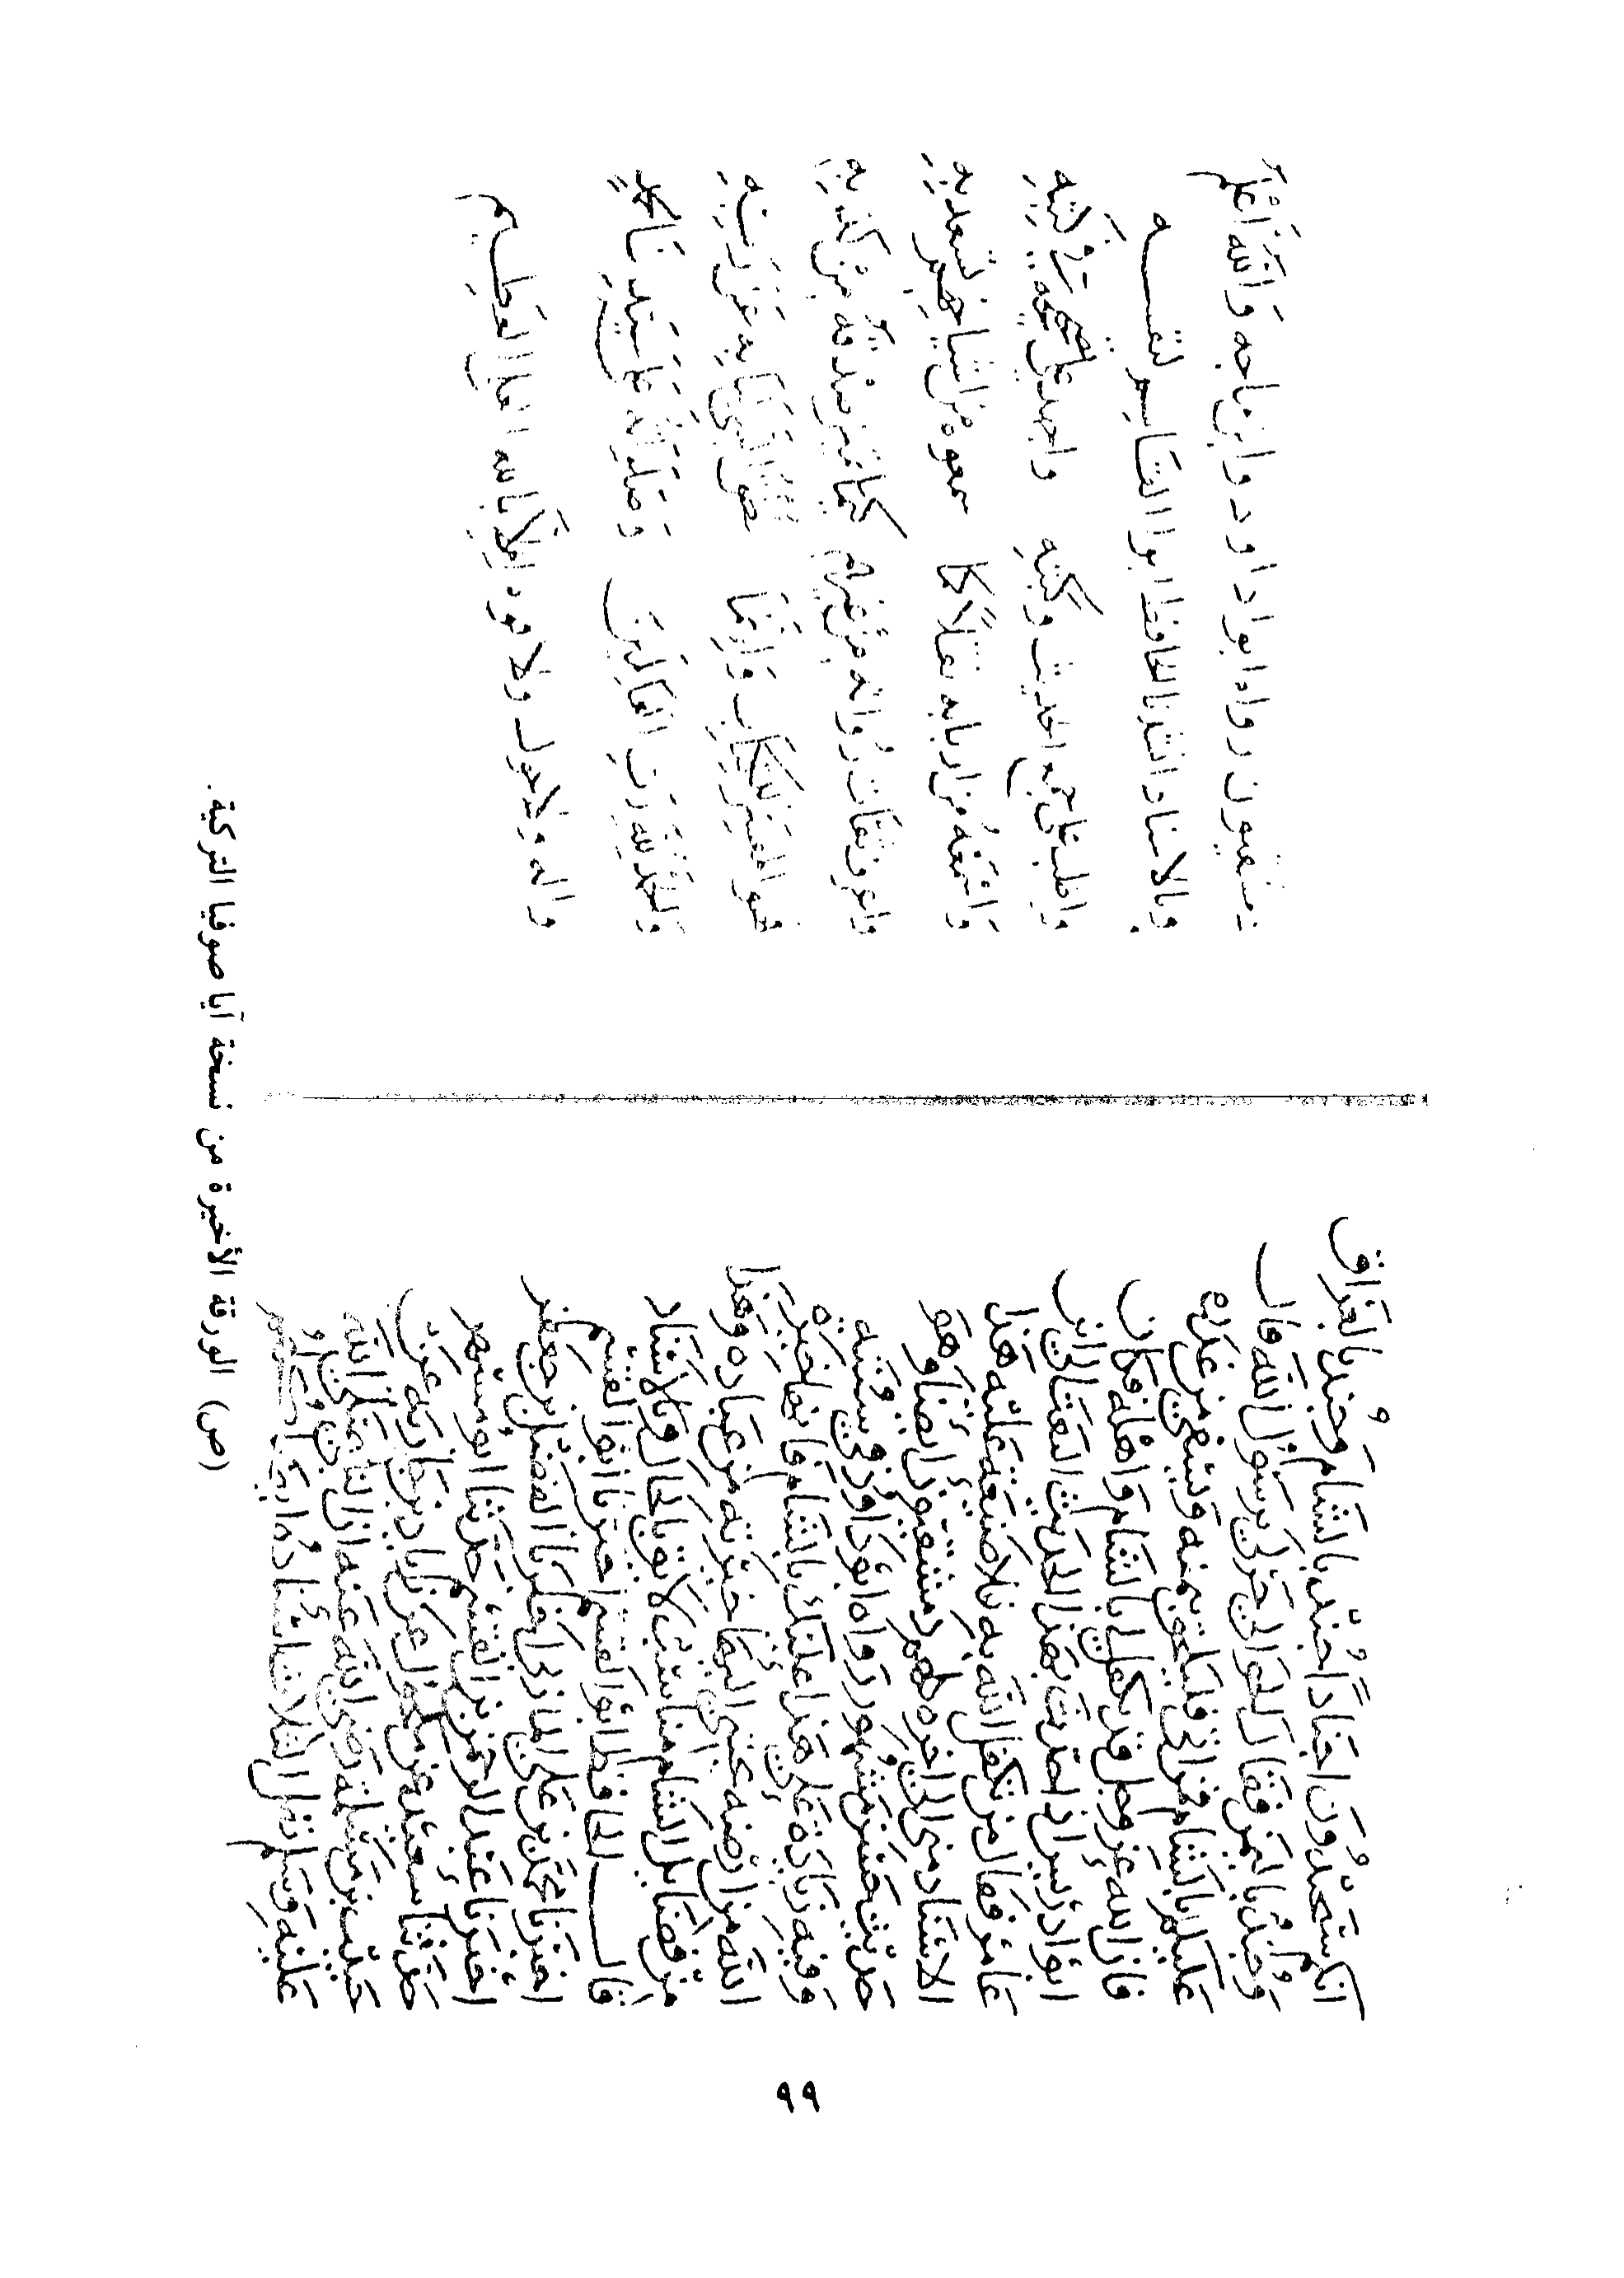 انكم ستجدون اجنادًا جُندٌ بالشام وجُندٌ بالعراق
وجندٌ باليمن فقال الحوالي خر لي يرسول الله قال
عليكم بالشام فمن ابى فليلحق بيمنه وليسق من غدره
فان الله عز وجل قد تكفل لي بالشام واهله فكان
ابو ادريس اذا حدث بهذا الحديث التفت الى ابن
عامر فقال من تكفل الله به فلا ضيعة عليه هذا
الاسناد من الى اخره كلهم دمشقيون ايضا وهو
حديث حسن مشهور رواه ابو داود في سننه
وفيه زيادة على هذا عليك بالشام فانها خيرة
الله من ارضه يجتبي اليها خيرته من عباده وهذا
من فضايل الشام مناسب لا بالحال وبالاسناد
قال الحافظ ابو القسم اخبرنا ابو القسم
اخبرنا محمد بن علي المازني اخبرنا الفضل بن جعفر
اخبرنا عبد الرحمن بن القسم حدثنا ابو مسهر
حدثنا سعيد عن مكحول عن زياد بن جارية عن
حبيب بن مسلمة رضي الله عنه ان النبي صلى الله
عليه وسلم نفل الثلث
دمشقيون رواه ابو داود وابن ماجه والله اعلم
وبالاسناد انشدنا الحافظ ابو القاسم لنفسه
واظب على جمع الحديث وكتبه واجهد على تصحيحه في كتبه
واسمعه من اربابه نقلا كما سمعوه من اشياخهم تسعد به
واعرف ثقات رواته من غيرهم كيما تميز صدقه من كذبه
فهو المفسر للكتاب وانما نطق النبي كتابه عن ربه
والحمد لله رب العالمين وصلى الله على سيدنا محمد
واله ولا حول ولا قوة الا بالله العلي العظيم
الورقة الأخيرة من نسخة آيا صوفيا التركية. (ص)
٩٩